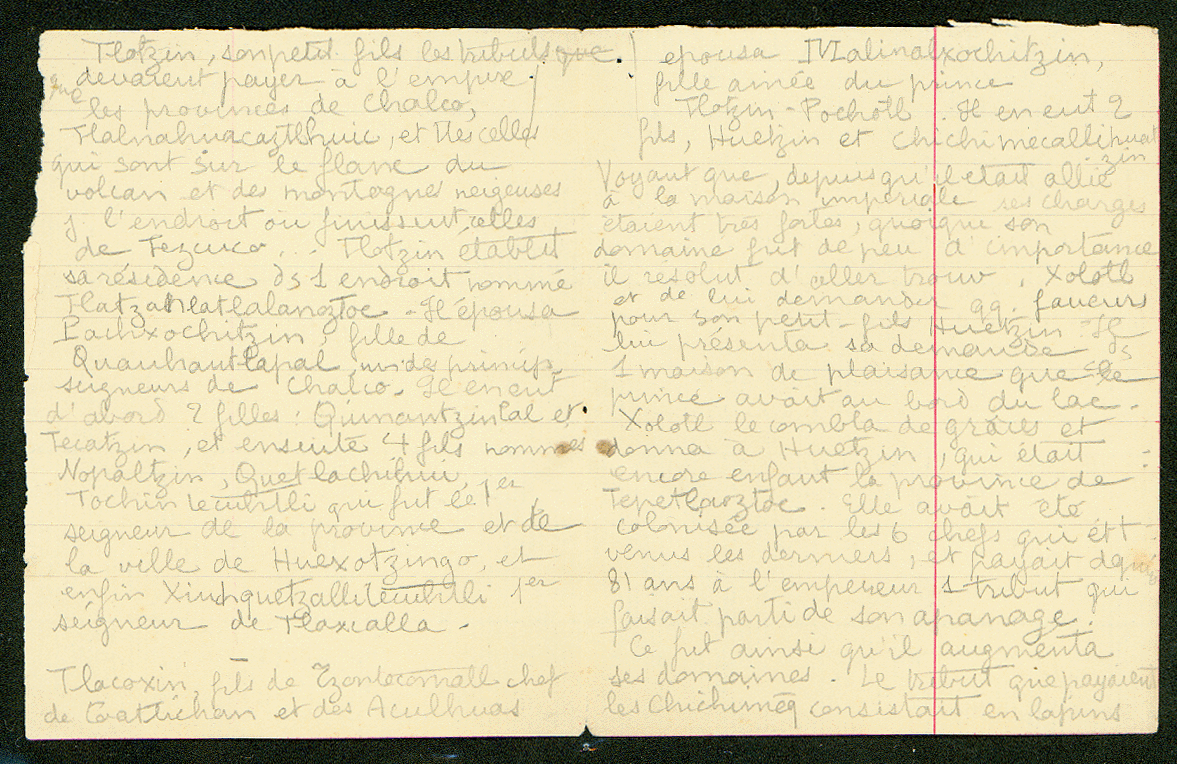 Tlotzin, son petit fils les tributs que
devaient payer à l'empire
que les provinces de Chalco,
Tlalnahuacaztlhuic, et ttes celles
qui sont sur le flanc du
volcan et des montagnes neigeuses
j l'endroit où finissent, elles
de Tezcuco... Tlotzin établit
sa résidence ds 1 endroit nommé
Tlatzallatlalanoztoc - Il épousa
Pachxochitzin, fille de
Quauhautlapal, un des princip.
seigneurs de Chalco. Il en eut
d'abord 2 filles: et
Tecatzin, et ensuite 4 fils nommés
Nopaltzin, Quetlachihui,
Tochin tecuhtli qui fut le 1er
seigneur de la province et de
la ville de Huexotzingo, et
enfin Xiuhquetzaltitecuhtli 1er
seigneur de Tlaxcalla -
Tlacoxin, fils de chef
de Coatlichan et des Aculhuas
epousa Malinalxochitzin,
fille ainée du prince
Tlotzin - Pochotl. Il en eut 2
fils, Huetzin et Chichimecallihuat
zin
Voyant que, depuis qu'il était allié
à la maison impériale ses charges
étaient très fortes, quoique son
domaine fut de peu d'importance
il resolut d'aller trouv. Xolotl
et de lui demander qq. faveurs
pour son petit-fils Huetzin - Il
lui présenta sa demande ds
1 maison de plaisance que le
prince avait au bord du lac -
Xolotl le combla de grâces et
donna à Huetzin, qui était
encore enfant la province de
Tepetlaoztoc. Elle avait été
colonisée par les 6 chefs qui étt
venus les derniers, et payait dqui
81 ans à l'empereur 1 tribut qui
faisait parti de son apanage.
Ce fut ainsi qu'il augmenta
ses domaines. Le tribut que payaient
les Chichimeq consistait en lapins